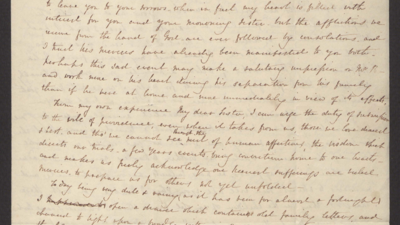 to leave you to your sorrow, when in fact my heart is filled with
interest for you and your mourning sister. but the afflictions we
receive from the hand of God are ever followed by consolations, and
I trust his mercies have already been manifested to you both.
Perhaps this sad event may make a salutary impression on Mr
and work more on his heart during his separation from his family
than if he were at home and were immediately in view of its effects.
From my own experience My dear sister, I can urge the duty of submission
to the will of providence, even when it takes from us, those we love dearest
& best. and tho' we cannot see, thro' the of human affections, the wisdom which
directs our trials, a few years events bring conviction home to our hearts
and makes us freely acknowledge our heaviest sufferings are but
mercies, to prepare us for others not yet unfolded.
To day being very dull & rainy, as it has been for almost a fortnight
I open a desk which contained old family letters, and
chanced to light upon a